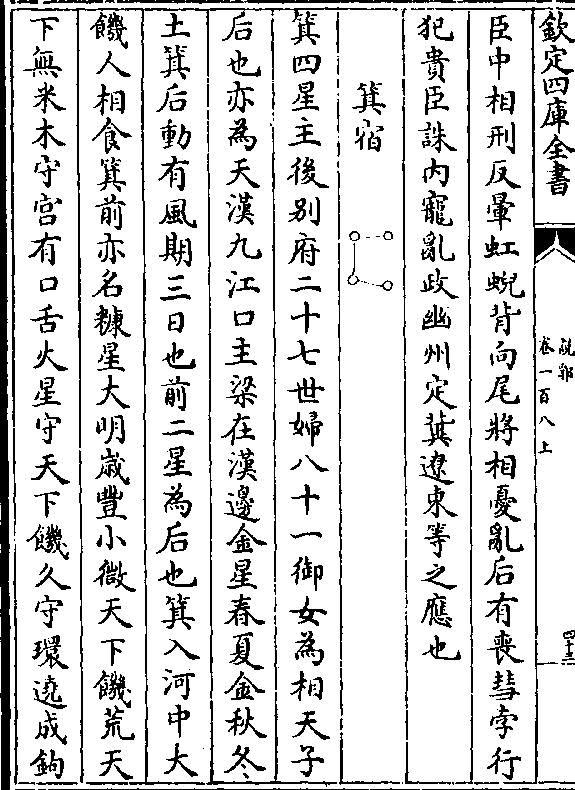 欽定四庫全書
說郛
卷一百八上
四十三
臣中相刑反暈虹蜺背向尾將相憂亂后有喪彗孛行
犯貴臣誅内寵亂政幽州定冀遼東等之應也
箕宿
箕四星主後别府二十七世婦八十一御女為相天子
后也亦為天漢九江口主梁在漢邊金星春夏金秋冬
土箕后動有風期三日也前二星為后也箕入河中大
饑人相食箕前亦名糠星大明歲豐小微天下饑荒天
下無米木守宫有口舌火星守天下饑久守環遶成鉤